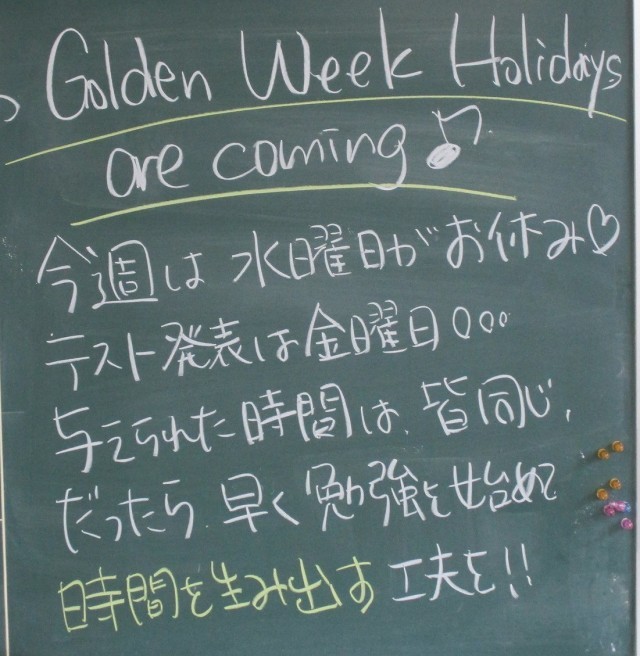 Golden Week Holidays
are coming♪
今週は水曜日がお休み♡
テスト発表は金曜日。。。
与えられた時間は、皆同じ、
だったら、早く勉強を始めて
時間を生み出す工夫を!!